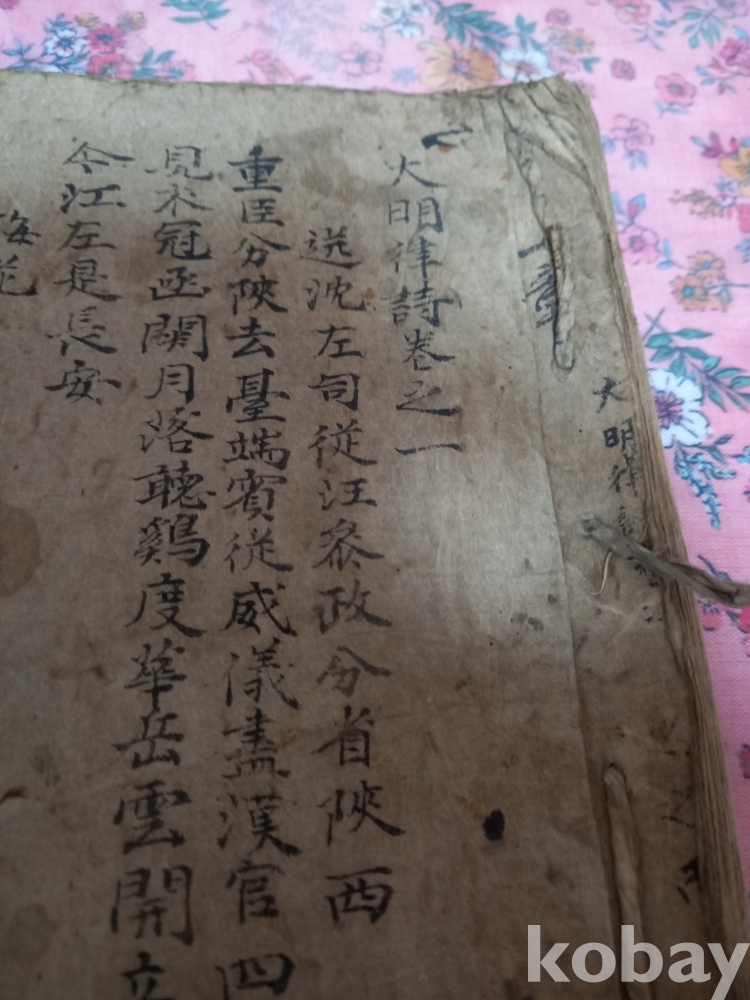 大明律
大明律詩卷之一
送沈左司從汪叅政分省陝西
重臣分陝去臺端賓從威儀盡漢官四
見衣冠函關月落聽鷄度華岳雲開立
今江左是長安
梅花
kobay